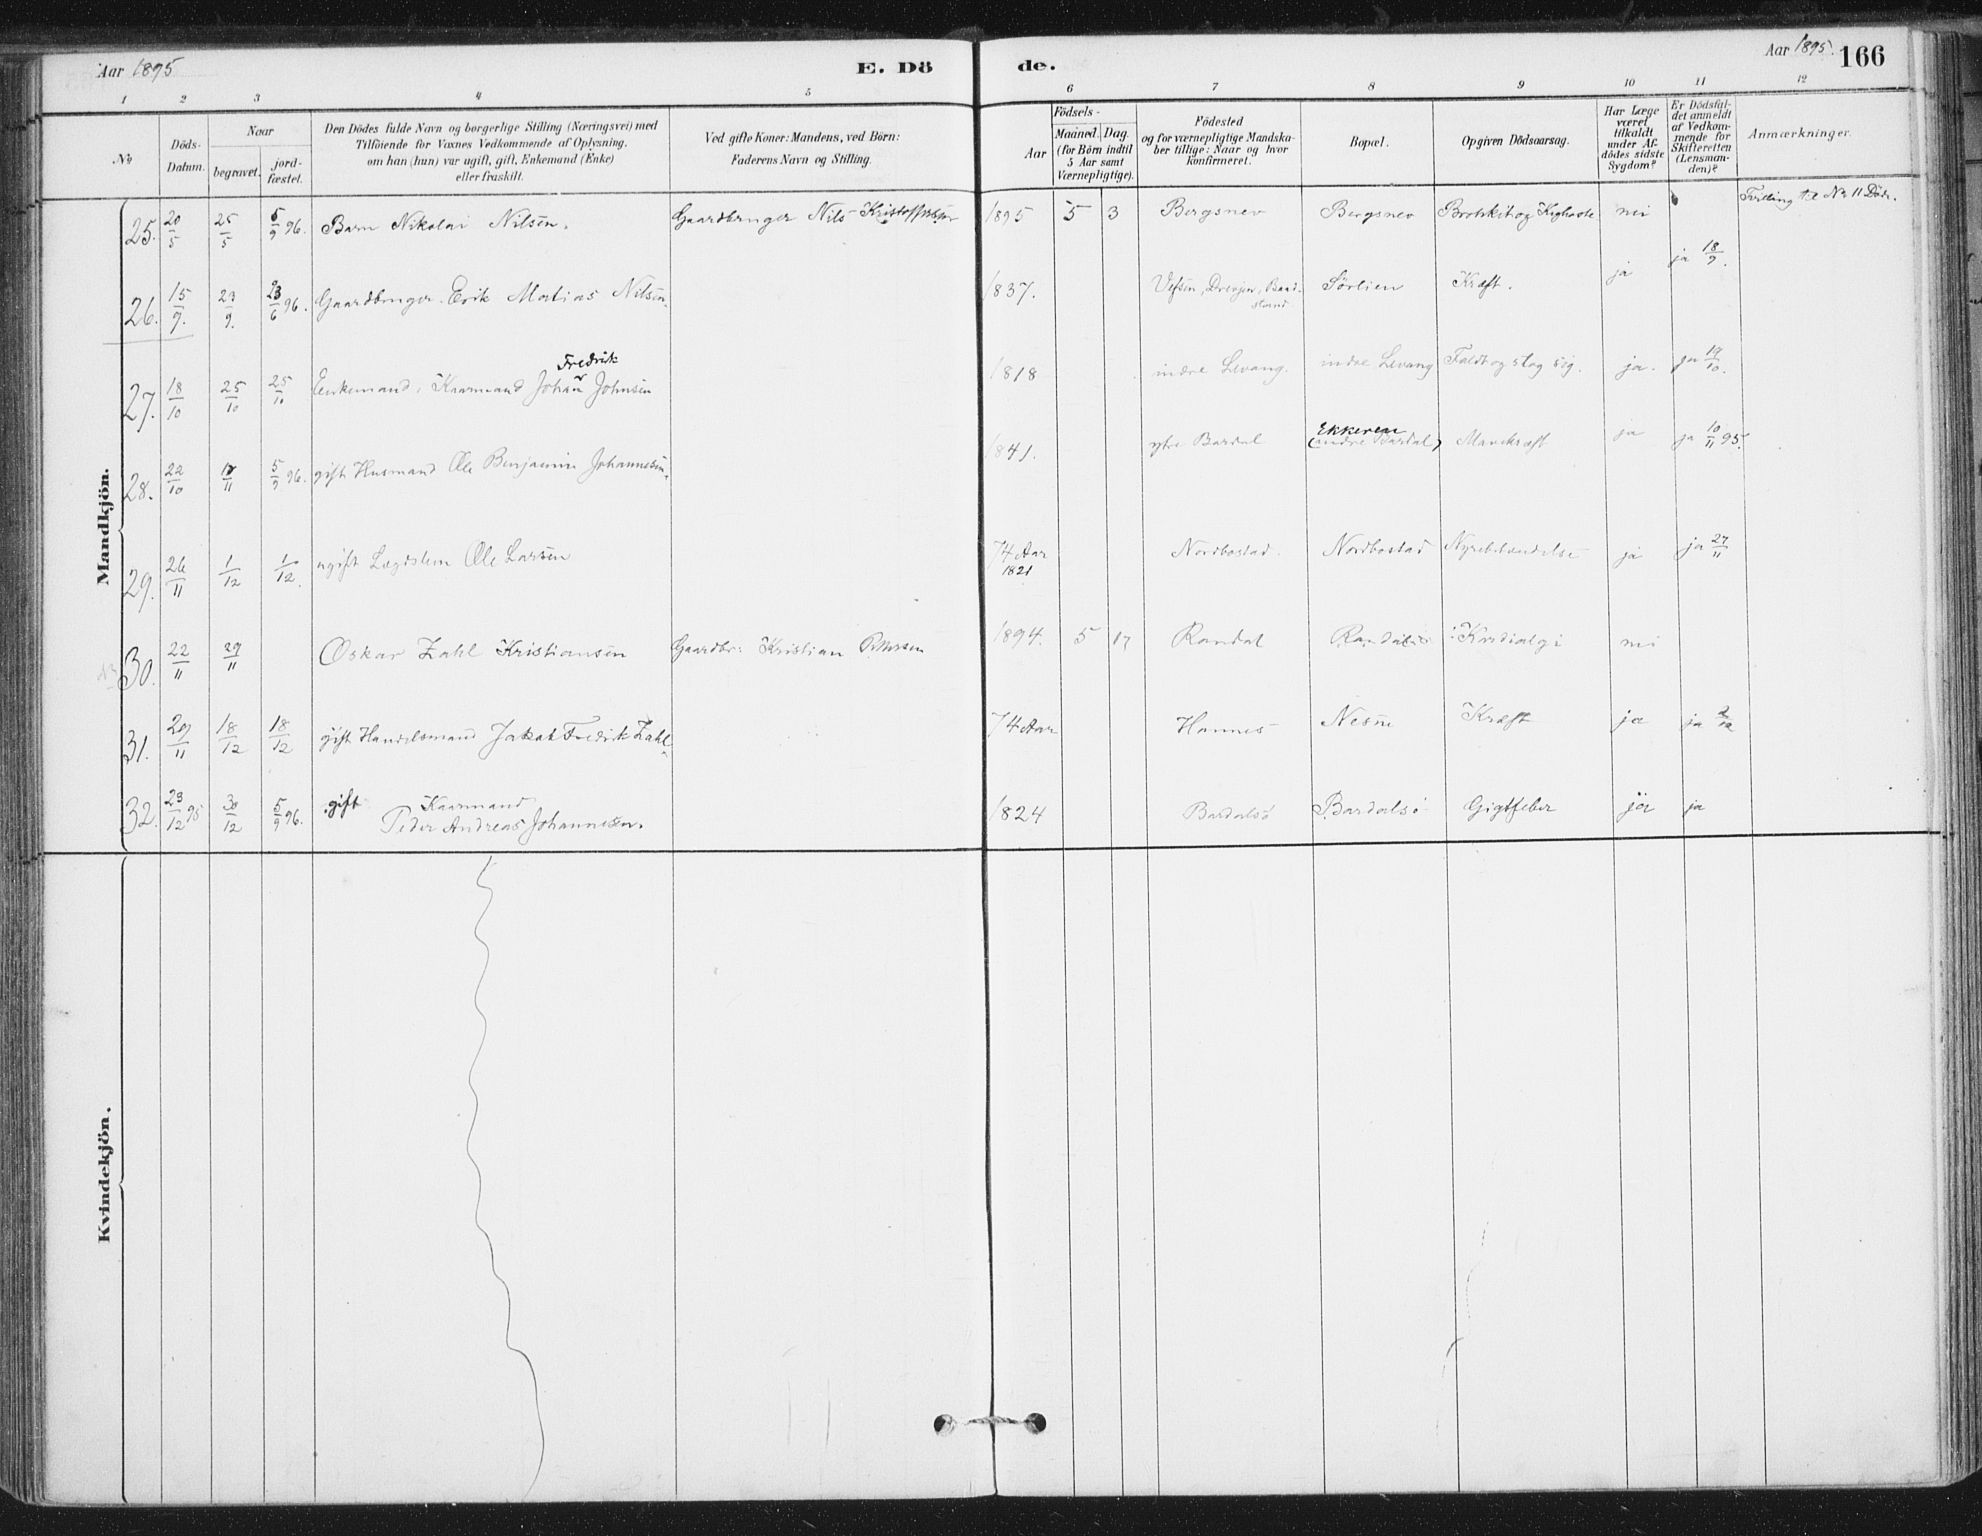 Aar 1895
E. Dö
de.
Aar 1895.
166
1 2 3 4 5 6 7 8 9 10 11 12
No
Döds-
Datum.
Naar
begravet.
jord-
fæstet.
Den Dödes fulde Navn og borgerlige Stilling (Næringsvei) med
Tilföiende for Voxnes Vedkommende af Oplysning,
om han (hun) var ugift, gift, Enkemand (Enke)
eller fraskilt.
Ved gifte Koner: Mandens, ved Börn:
Faderens Navn og Stilling.
Födsels-
Aar
Maaned. Dag.
(for Börn indtil
5 Aar samt
Værnepligtige).
Födested
og for værnepligtige Mandska-
ber tillige: Naar og hvor
konfirmeret.
Bopæl.
Opgiven Dödsaarsag.
Har Læge
været
tilkaldt
under Af-
dödes sidste
Sygdom?
Er Dödsfal-
det anmeldt
af Vedkom-
mende for
Skifteretten
(Lensman-
den)?
Anmærkninger.
Mandkjön.
25. 20/5 25/5 5/9 96. Barn Nikolai Nilsen. Gaardbruger Nils Kristoffersen 1895 5 3 Bergsnev Bergsnev nei Tvilling til No 11 Döde.
26. 15/9. 23/9. 23/6 96. Gaardbruger Erik Matias Nilsen. 1837. Vefsen, Drevjen, Sörlien Kræft. ja ja 18/9.
Fredrik
27. 18/10 25/10 25/10 Enkemand, Kaarmand Johan Johnsen 1818 indre Levang. indre Levang Faldt og slog sig. ja. ja 19/10.
Ekkeren
28. 22/10 5/9 96. gift Husmand Ole Benjamin Johannesen. 1841. ytre Bardal (indre Bardal) Mavekræft ja ja 10/11 95.
29. 26/11 1/12 1/12. ugift Lægdslem Ole Larsen 74 Aar Nordbostad. Nordbostad Nyrebetændelse ja ja 27/11
1821
30. 22/11 29/11 Oskar Zahl Kristiansen Gaardbr: Kristian Pettersen 1894. 5 17 Randal nei
31. 29/11 18/12 18/12 gift Handelsmand Jakob Fredrik Zahl 74 Aar Hannes Nesne Kræft ja ja 2/12
32. 23/12 95 30/12 5/9 96. gift Kaarmand
Peder Andreas Johannesen. 1824 Bardalsö Bardalsö Gigtfeber ja ja
Kvindekjön.